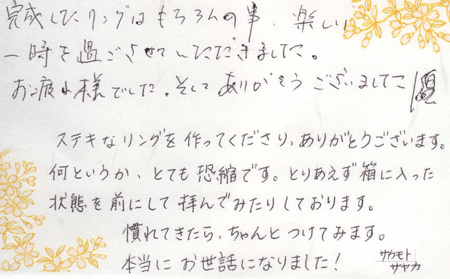 完成したリングはもちろんの事、楽しい
一時を過ごさせていただきました。
お疲れ様でした。そしてありがとうございました
ステキなリングを作ってくださり、ありがとうございます。
何というか、とても恐縮です。とりあえず箱に入った
状態を前にして拝んでみたりしております。
慣れてきたら、ちゃんとつけてみます。
本当にお世話になりました！
サカモト
サヤカ